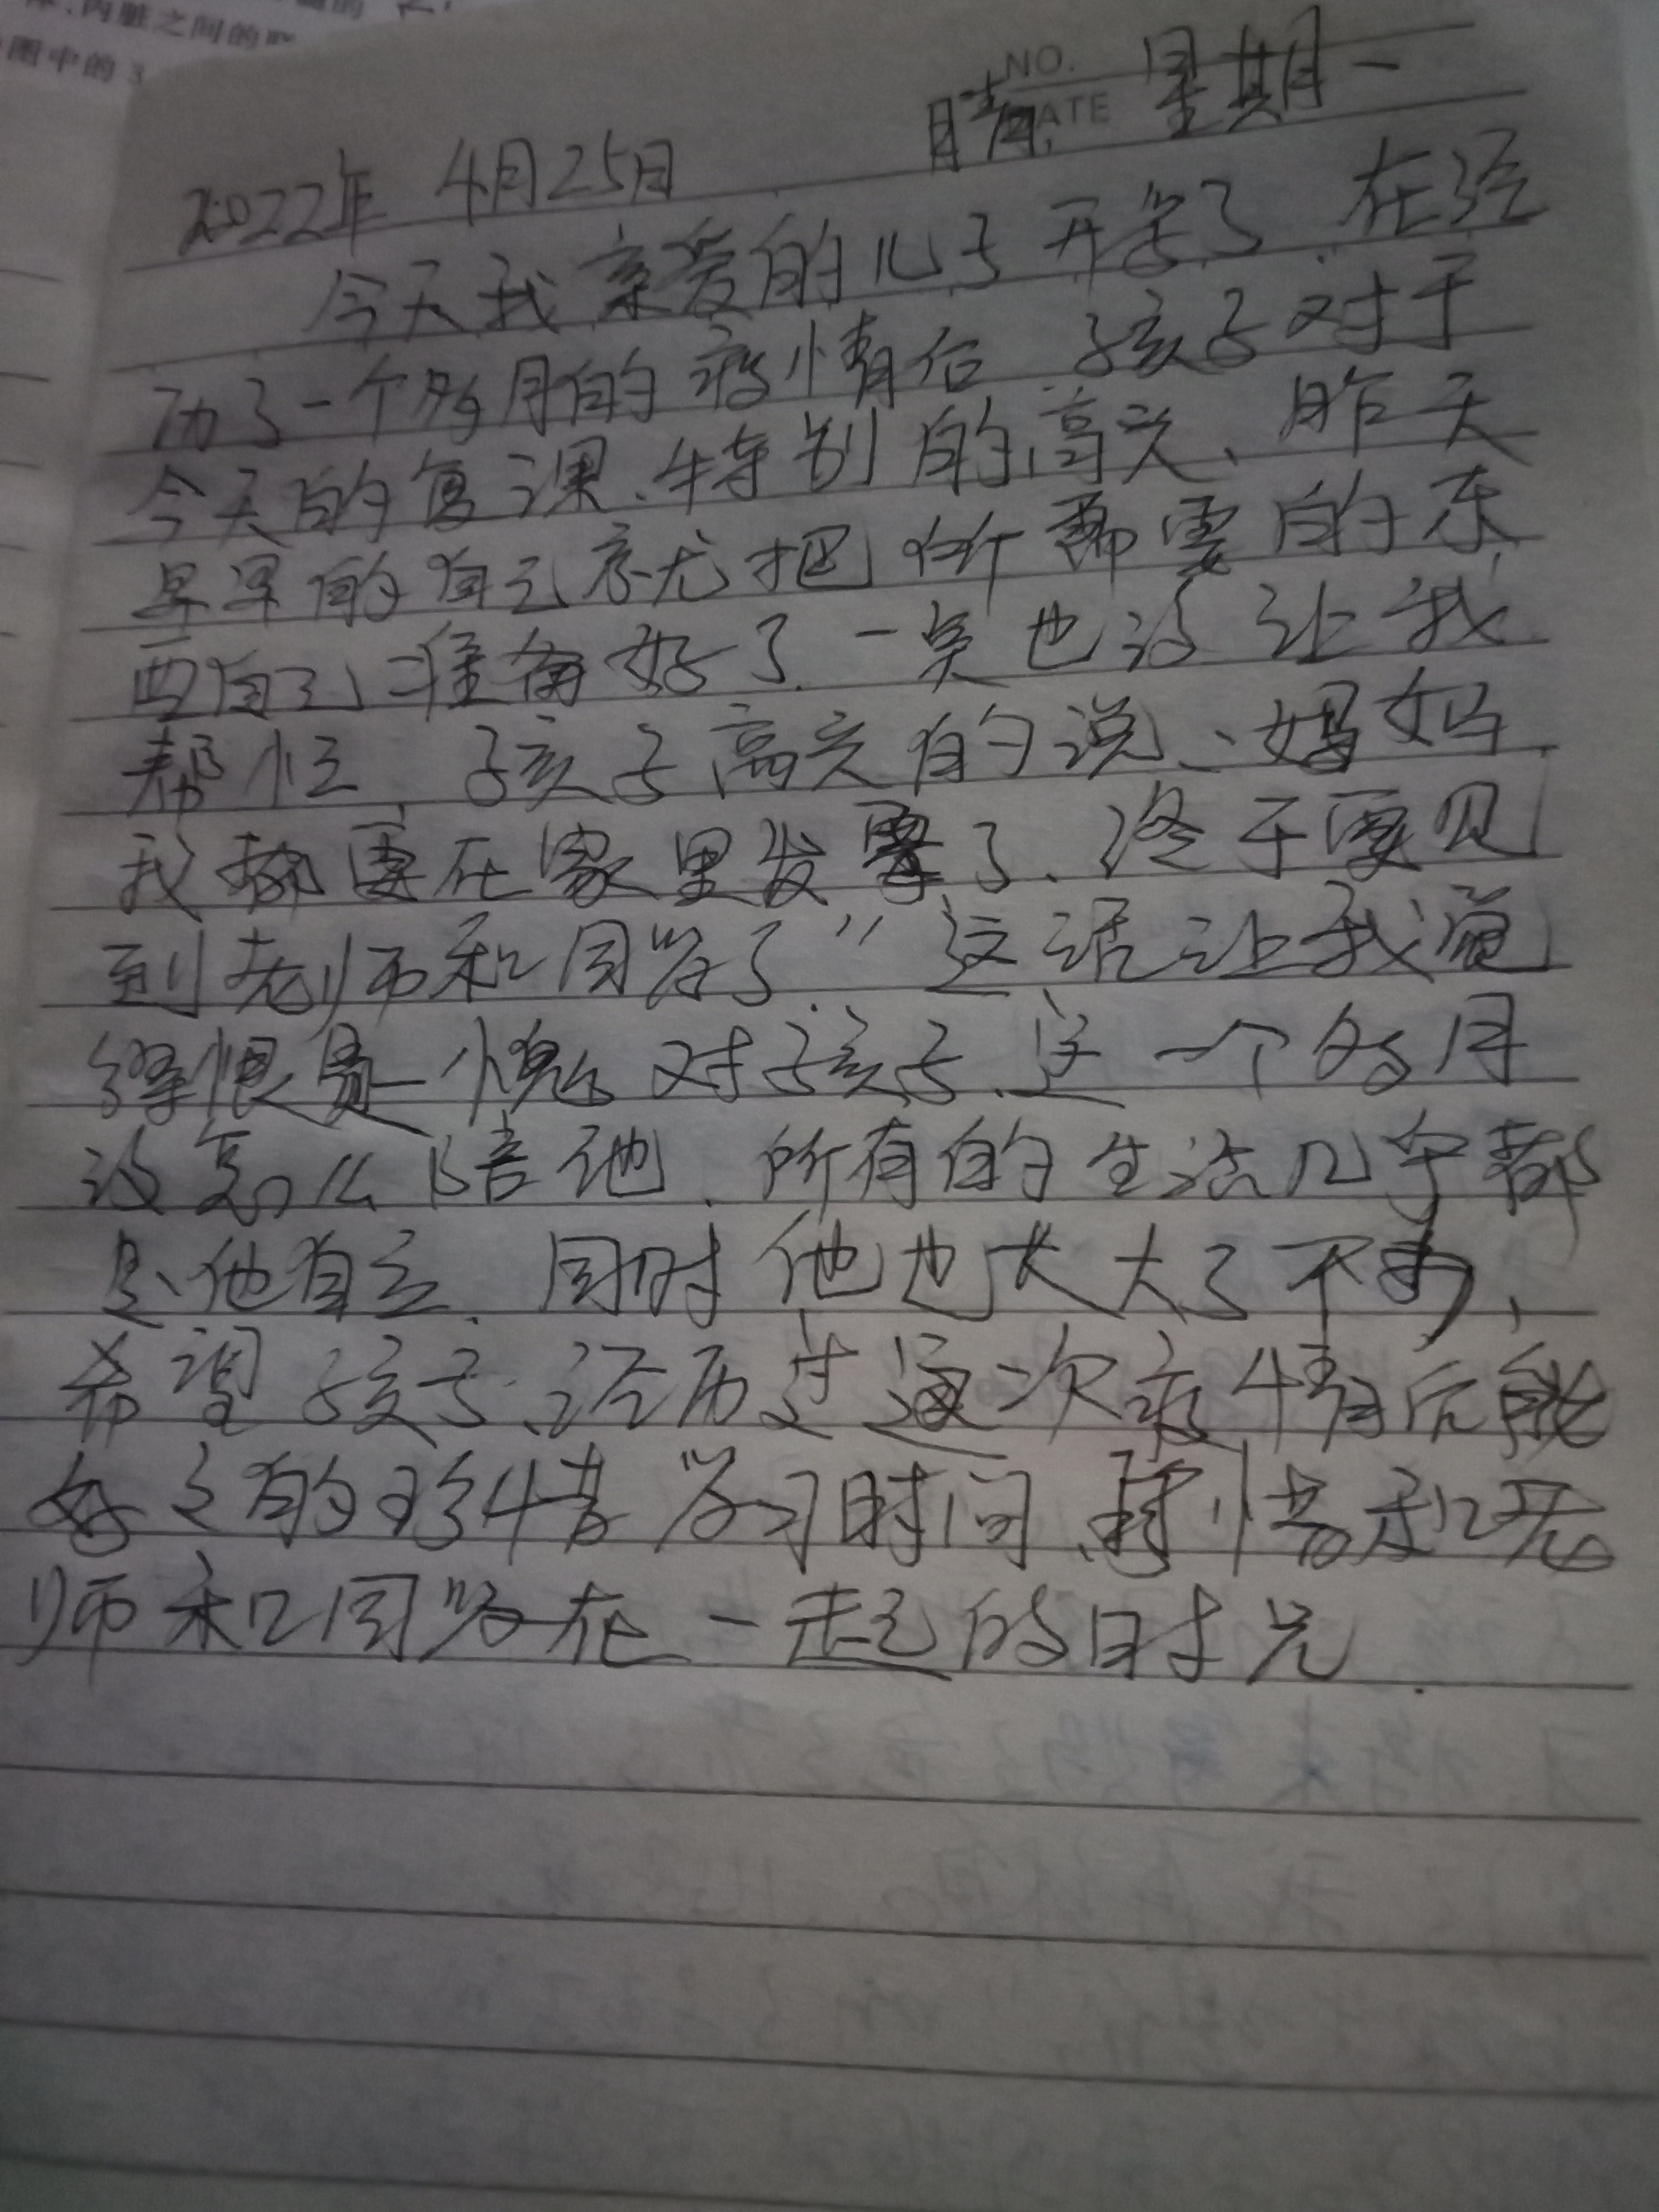 体、内脏之间的联
图中的3
NO.
DATE
晴. 星期一
2022年 4月25日
今天我亲爱的儿子开学了 在经
历了一个多月的疫情后 孩子对于
今天的复课、特别的高兴、昨天
早早的自己就把所需要的东
西自己准备好了.一点也没让我
帮忙、孩子高兴的说、妈妈
我都要在家里发霉了、终于要见
到老师和同学了”这话让我觉
得很是愧对孩子、这一个多月
没怎么陪他.所有的生活几乎都
是他自立.同时他也长大了不少、
希望孩子、经历过这次疫情后能
好之的珍惜学习时间、珍惜和老
师和同学在一起的时光.